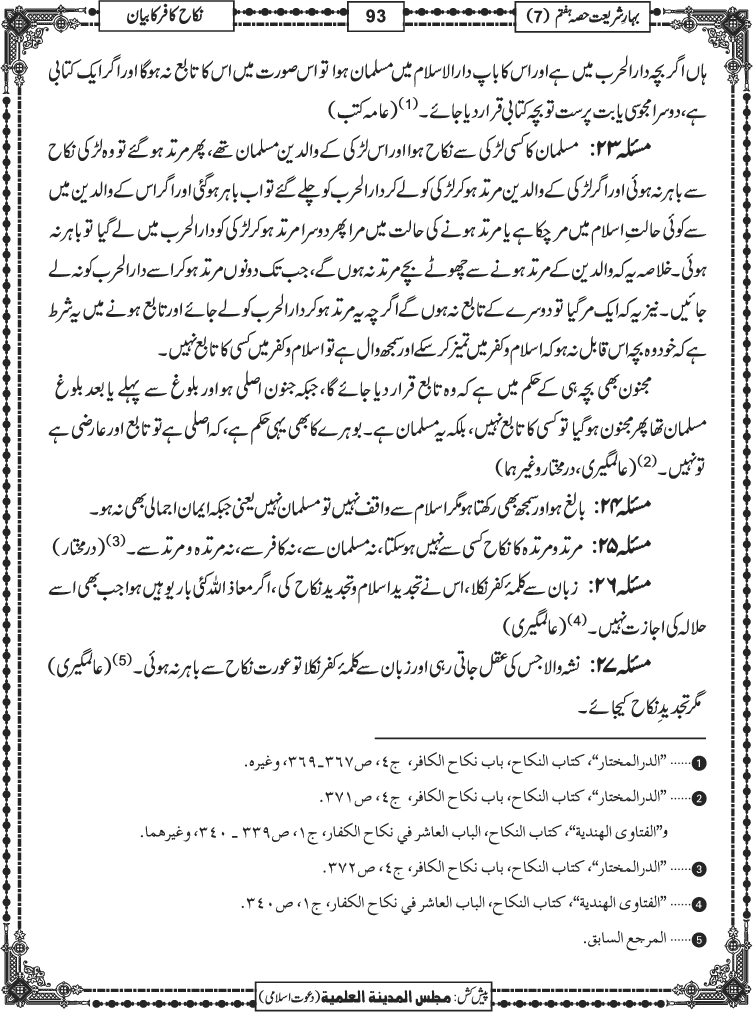 بہار شریعت حصہ ہفتم (7)
93
نکاح کافر کا بیان
ہاں اگر بچہ دارالحرب میں ہے اور اس کا باپ دارالاسلام میں مسلمان ہوا تو اس صورت میں اس کا تابع نہ ہوگا اور اگر ایک کتابی
ہے، دوسرا مجوسی یا بت پرست تو بچہ کتابی قرار دیا جائے۔(1) (عامہ کتب)
مسئلہ ۲۳: مسلمان کا کسی لڑکی سے نکاح ہوا اور اس لڑکی کے والدین مسلمان تھے، پھر مرتد ہو گئے تو وہ لڑکی نکاح
سے باہر نہ ہوئی اور اگر لڑکی کے والدین مرتد ہو کر لڑکی کو لے کر دارالحرب کو چلے گئے تو اب باہر ہوگئی اور اگر اس کے والدین میں
سے کوئی حالتِ اسلام میں مر چکا ہے یا مرتد ہونے کی حالت میں مرا پھر دوسرا مرتد ہو کر لڑکی کو دارالحرب میں لے گیا تو باہر نہ
ہوئی۔ خلاصہ یہ کہ والدین کے مرتد ہونے سے چھوٹے بچے مرتد نہ ہوں گے، جب تک دونوں مرتد ہو کر اسے دارالحرب کو نہ لے
جائیں۔ نیز یہ کہ ایک مر گیا تو دوسرے کے تابع نہ ہوں گے اگرچہ یہ مرتد ہو کر دارالحرب کو لے جائے اور تابع ہونے میں یہ شرط
ہے کہ خود وہ بچہ اس قابل نہ ہو کہ اسلام و کفر میں تمیز کر سکے اور سمجھ وال ہے تو اسلام و کفر میں کسی کا تابع نہیں۔
مجنون بھی بچہ ہی کے حکم میں ہے کہ وہ تابع قرار دیا جائے گا، جبکہ جنون اصلی ہو اور بلوغ سے پہلے یا بعد بلوغ
مسلمان تھا پھر مجنون ہو گیا تو کسی کا تابع نہیں، بلکہ یہ مسلمان ہے۔ بوہرے کا بھی یہی حکم ہے، کہ اصلی ہے تو تابع اور عارضی ہے
تو نہیں۔(2) (عالمگیری، درمختار وغیرہما)
مسئلہ ۲۴: بالغ ہو اور سمجھ بھی رکھتا ہو مگر اسلام سے واقف نہیں تو مسلمان نہیں یعنی جبکہ ایمان اجمالی بھی نہ ہو۔
مسئلہ ۲۵: مرتد و مرتدہ کا نکاح کسی سے نہیں ہو سکتا، نہ مسلمان سے، نہ کافر سے، نہ مرتدہ و مرتد سے۔(3) (درمختار)
مسئلہ ۲۶: زبان سے کلمۂ کفر نکلا، اس نے تجدیدِ اسلام و تجدیدِ نکاح کی، اگر معاذ اللہ کئی بار یوہیں ہوا جب بھی اسے
حلالہ کی اجازت نہیں۔(4) (عالمگیری)
مسئلہ ۲۷: نشہ والا جس کی عقل جاتی رہی اور زبان سے کلمۂ کفر نکلا تو عورت نکاح سے باہر نہ ہوئی۔(5) (عالمگیری)
مگر تجدیدِ نکاح کیجائے۔
1 ...... ”الدرالمختار“، كتاب النكاح، باب نكاح الكافر، ج٤، ص٣٦٧ـ٣٦٩، وغيره.
2 ...... ”الدرالمختار“، كتاب النكاح، باب نكاح الكافر، ج٤، ص٣٧١.
و”الفتاوى الهندية“، كتاب النكاح، الباب العاشر في نكاح الكفار، ج١، ص٣٣٩ ـ ٣٤٠، وغيرهما.
3 ...... ”الدرالمختار“، كتاب النكاح، باب نكاح الكافر، ج٤، ص٣٧٢.
4 ...... ”الفتاوى الهندية“، كتاب النكاح، الباب العاشر في نكاح الكفار، ج١، ص٣٤٠.
5 ...... المرجع السابق.
پیش کش: مجلس المدینة العلمیة (دعوت اسلامی)